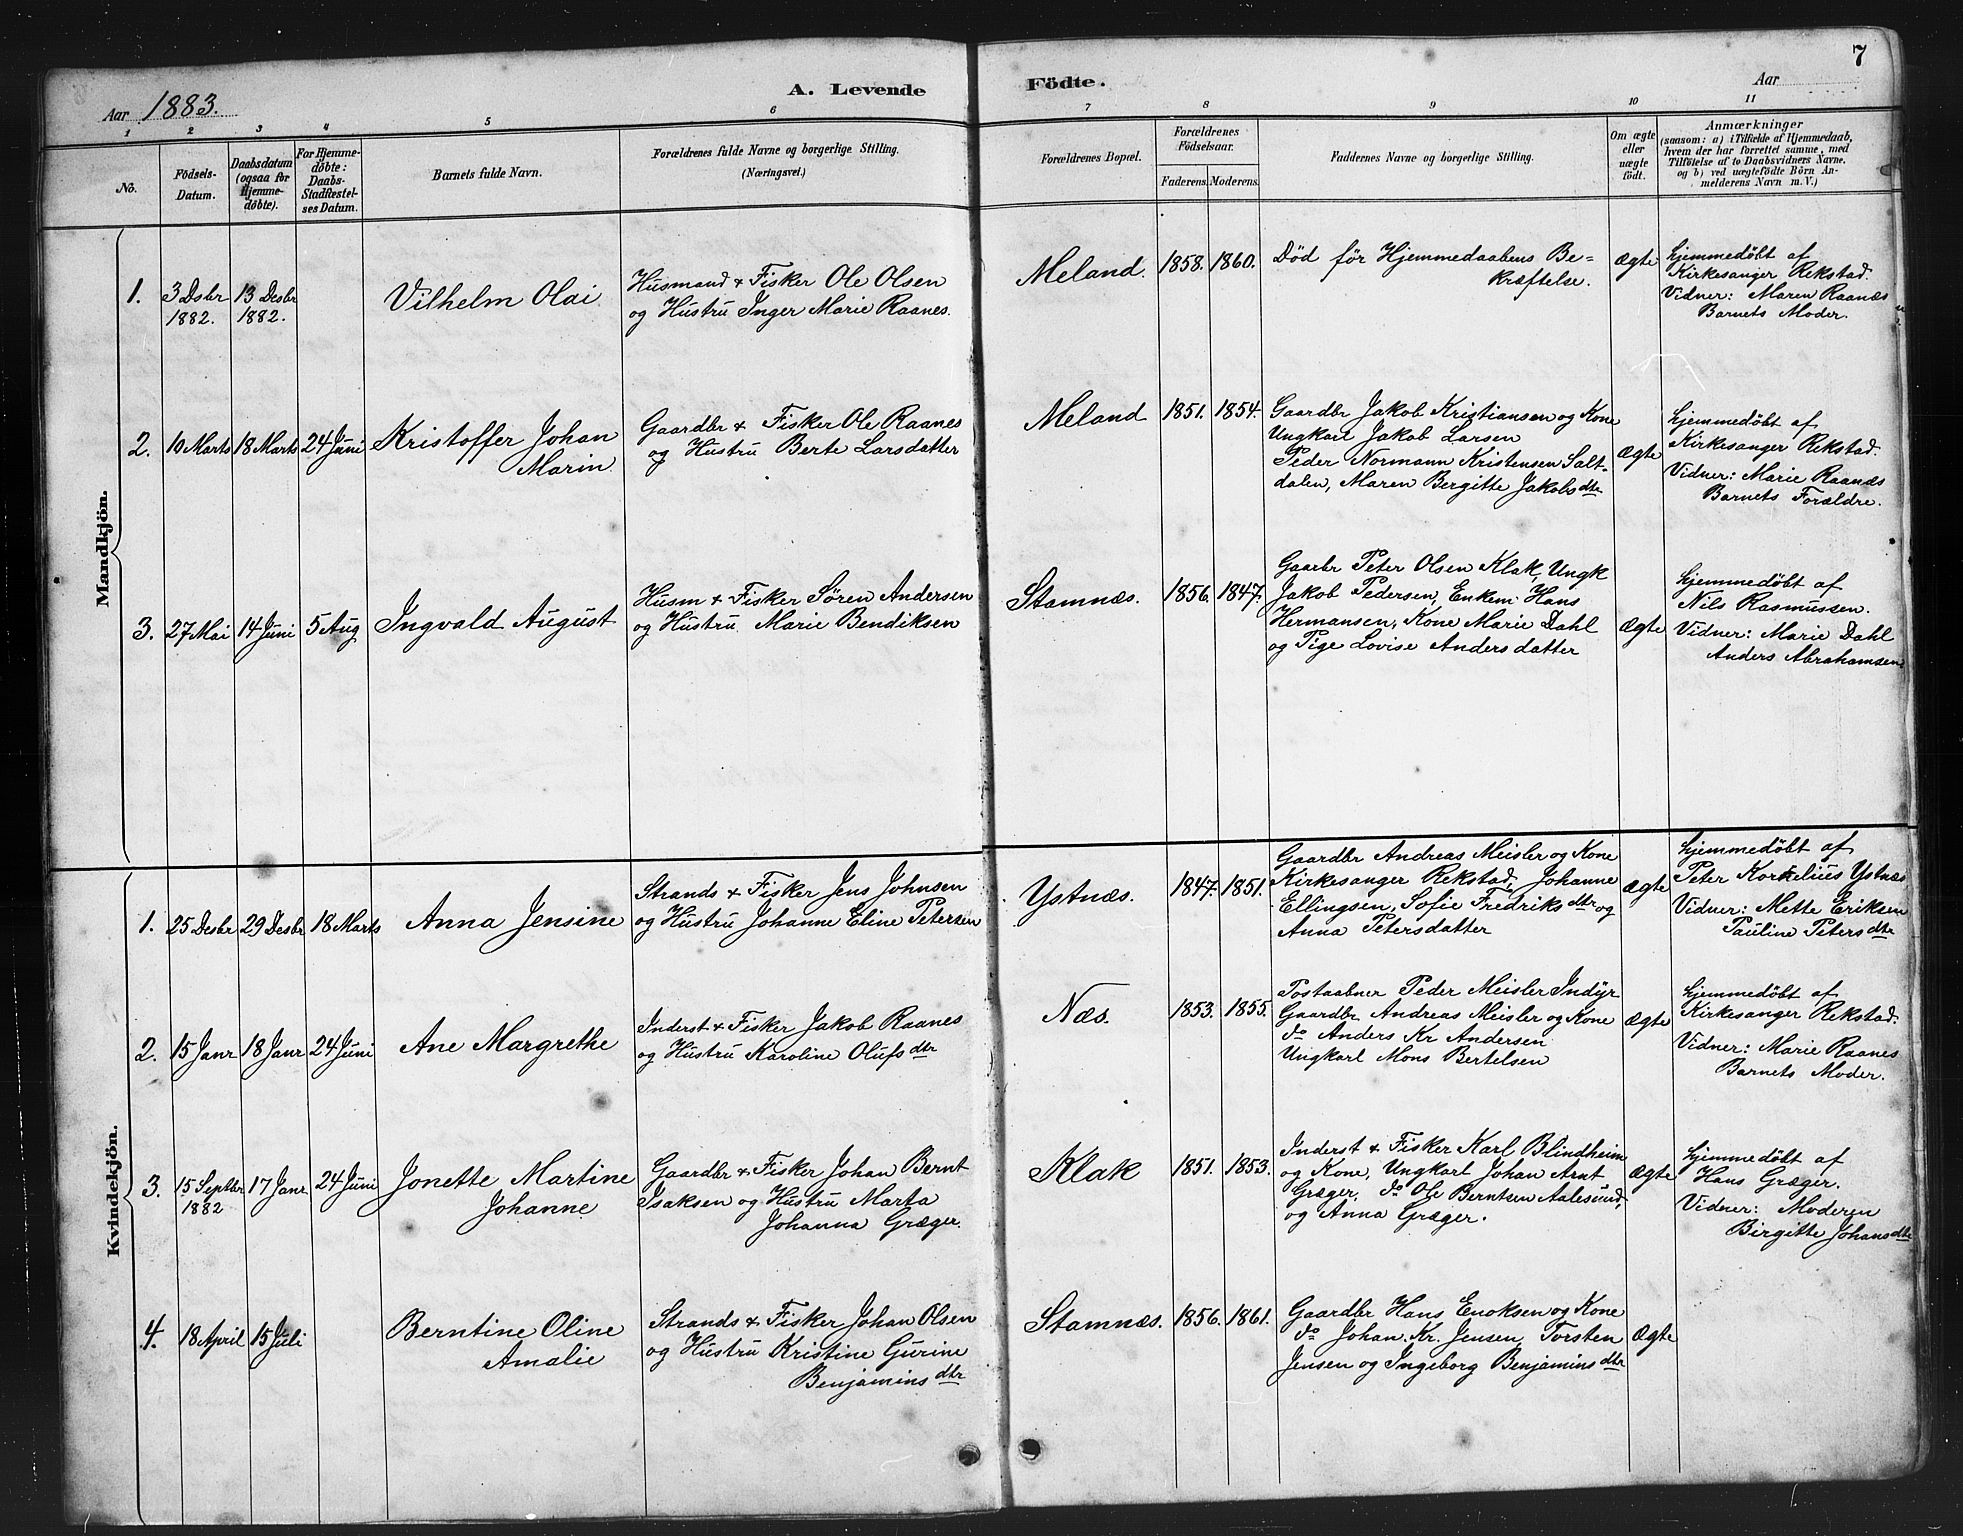 7
Aar 1883.
A. Levende Födte.
Aar
1 2 3 4 5 6 7 8 9 10 11
No.
Födsels-
Datum.
Daabsdatum
(ogsaa for
Hjemme-
döbte).
For Hjemme-
döbte:
Daabs-
Stadfæstel-
ses Datum.
Barnets fulde Navn.
Forældrenes fulde Navne og borgerlige Stilling.
(Næringsvei.)
Forældrenes Bopæl.
Forældrenes
Födselsaar.
Faderens. Moderens.
Faddernes Navne og borgerlige Stilling.
Om ægte
eller
uægte
födt.
Anmærkninger
(saasom: a) i Tilfælde af Hjemmedaab,
hvem der har forrettet samme, med
Tilföielse af to Daabsvidners Navne,
og b) ved uægtefödte Börn An-
melderens Navn m. V.)
Mandkjön.
1.
3 Dsbr
1882.
13 Desbr
1882.
Vilhelm Olai
Husmand & Fisker Ole Olsen
og Hustru Inger Marie Raanes.
Meland.
1858. 1860.
Død før Hjemmedaabens Be-
kræftelse.
Ægte
Hjemmedøbt af
Kirkesanger Rekstad.
Vidner: Maren Raanæs
Barnets Moder.
2.
10 Marts
18 Marts
24 Juni
Kristoffer Johan
Marin.
Gaardbr & Fisker Ole Raanes
og Hustru Berte Larsdatter
Meland
1851. 1854.
Gaardbr Jakob Kristiansen og Kone
Ungkarl Jakob Larsen
Peder Normann Kristensen Salt-
dalen, Maren Bergitte Jakobsdtr
Ægte
Hjemmedøbt af
Kirkesanger Rekstad.
Vidner: Marie Raanæs
Barnets Forældre.
3.
27 Mai
14 Juni
5 Aug
Ingvald August
Husm & Fisker Søren Andersen
og Hustru Marie Bendiksen
Stamnæs.
1856. 1847.
Gaarbr Peter Olsen Klak, Ungk
Jakob Pedersen, Enkem. Hans
Hermansen, Kone Marie Dahl
og Pige Lovise Andersdatter
Ægte
Hjemmedøbt af
Nils Rasmussen.
Vidner: Marie Dahl
Anders Abrahamsen
Kvindekjön.
1.
25 Desbr
29 Desbr
18 Marts
Anna Jensine
Strands & Fisker Jens Johnsen
og Hustru Johanne Eline Petersen
Ystnæs.
1847. 1851.
Gaardbr Andreas Meisler og Kone
Kirkesanger Rekstad, Johanne
Ellingsen, Sofie Fredriksdtr og
Anna Petersdatter
Ægte
Hjemmedøbt af
Peter Kornelius Ystnæs
Vidner: Mette Eriksen
Pauline Petersdtr
2.
15 Janr
18 Janr
24 Juni
Ane Margrethe
Inderst & Fisker Jakob Raanes
og Hustru Karoline Olufsdtr
Næs.
1853. 1855.
Postaabner Peder Meisler Indyr
Gaardbr Andreas Meisler og Kone
do Anders Kr Andersen
Ungkarl Mons Bertelsen
Ægte
Hjemmedøbt af
Kirkesanger Rekstad.
Vidner: Marie Raanes
Barnets Moder.
3.
15 Septbr
1882
17 Janr
24 Juni
Jonette Martine
Johanne
Gaardbr & Fisker Johan Bernt
Isaksen og Hustru Marta
Johanna Græger.
Klak
1851. 1853.
Inderst & Fisker Karl Blindheim
og Kone, Ungkarl Johan Arnt
Græger, do Ole Berntsen Aalesund,
og Anna Græger.
Ægte
Hjemmedøbt af
Hans Græger.
Vidner: Moderen
Birgitte Johansdtr
4.
18 April
15 Juli
Berntine Oline
Amalie
Strands & Fisker Johan Olsen
og Hustru Kristine Gurine
Benjaminsdtr
Stamnæs.
1856. 1861.
Gaardbr Hans Enoksen og Kone
do Johan. Kr. Jensen, Torsten
Jensen og Ingeborg Benjaminsdtr
Ægte